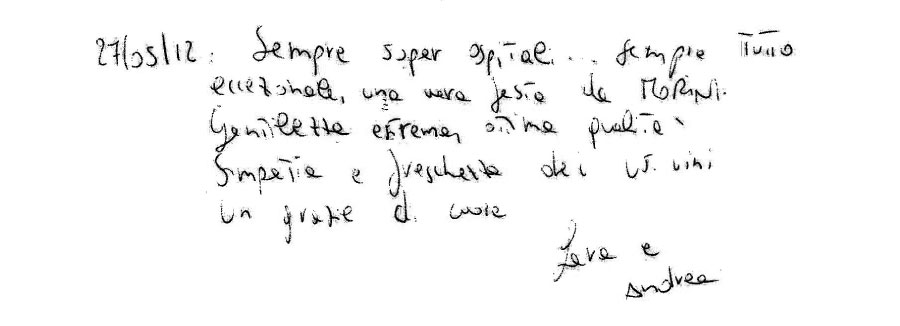 27/05/12: Sempre super ospitali... sempre tutto
eccezionale, una vera festa da MORINI.
Gentilezza estrema, ottima qualità
Simpatia e freschezza dei vs. vini
un grazie di cuore
Sara e
Andrea